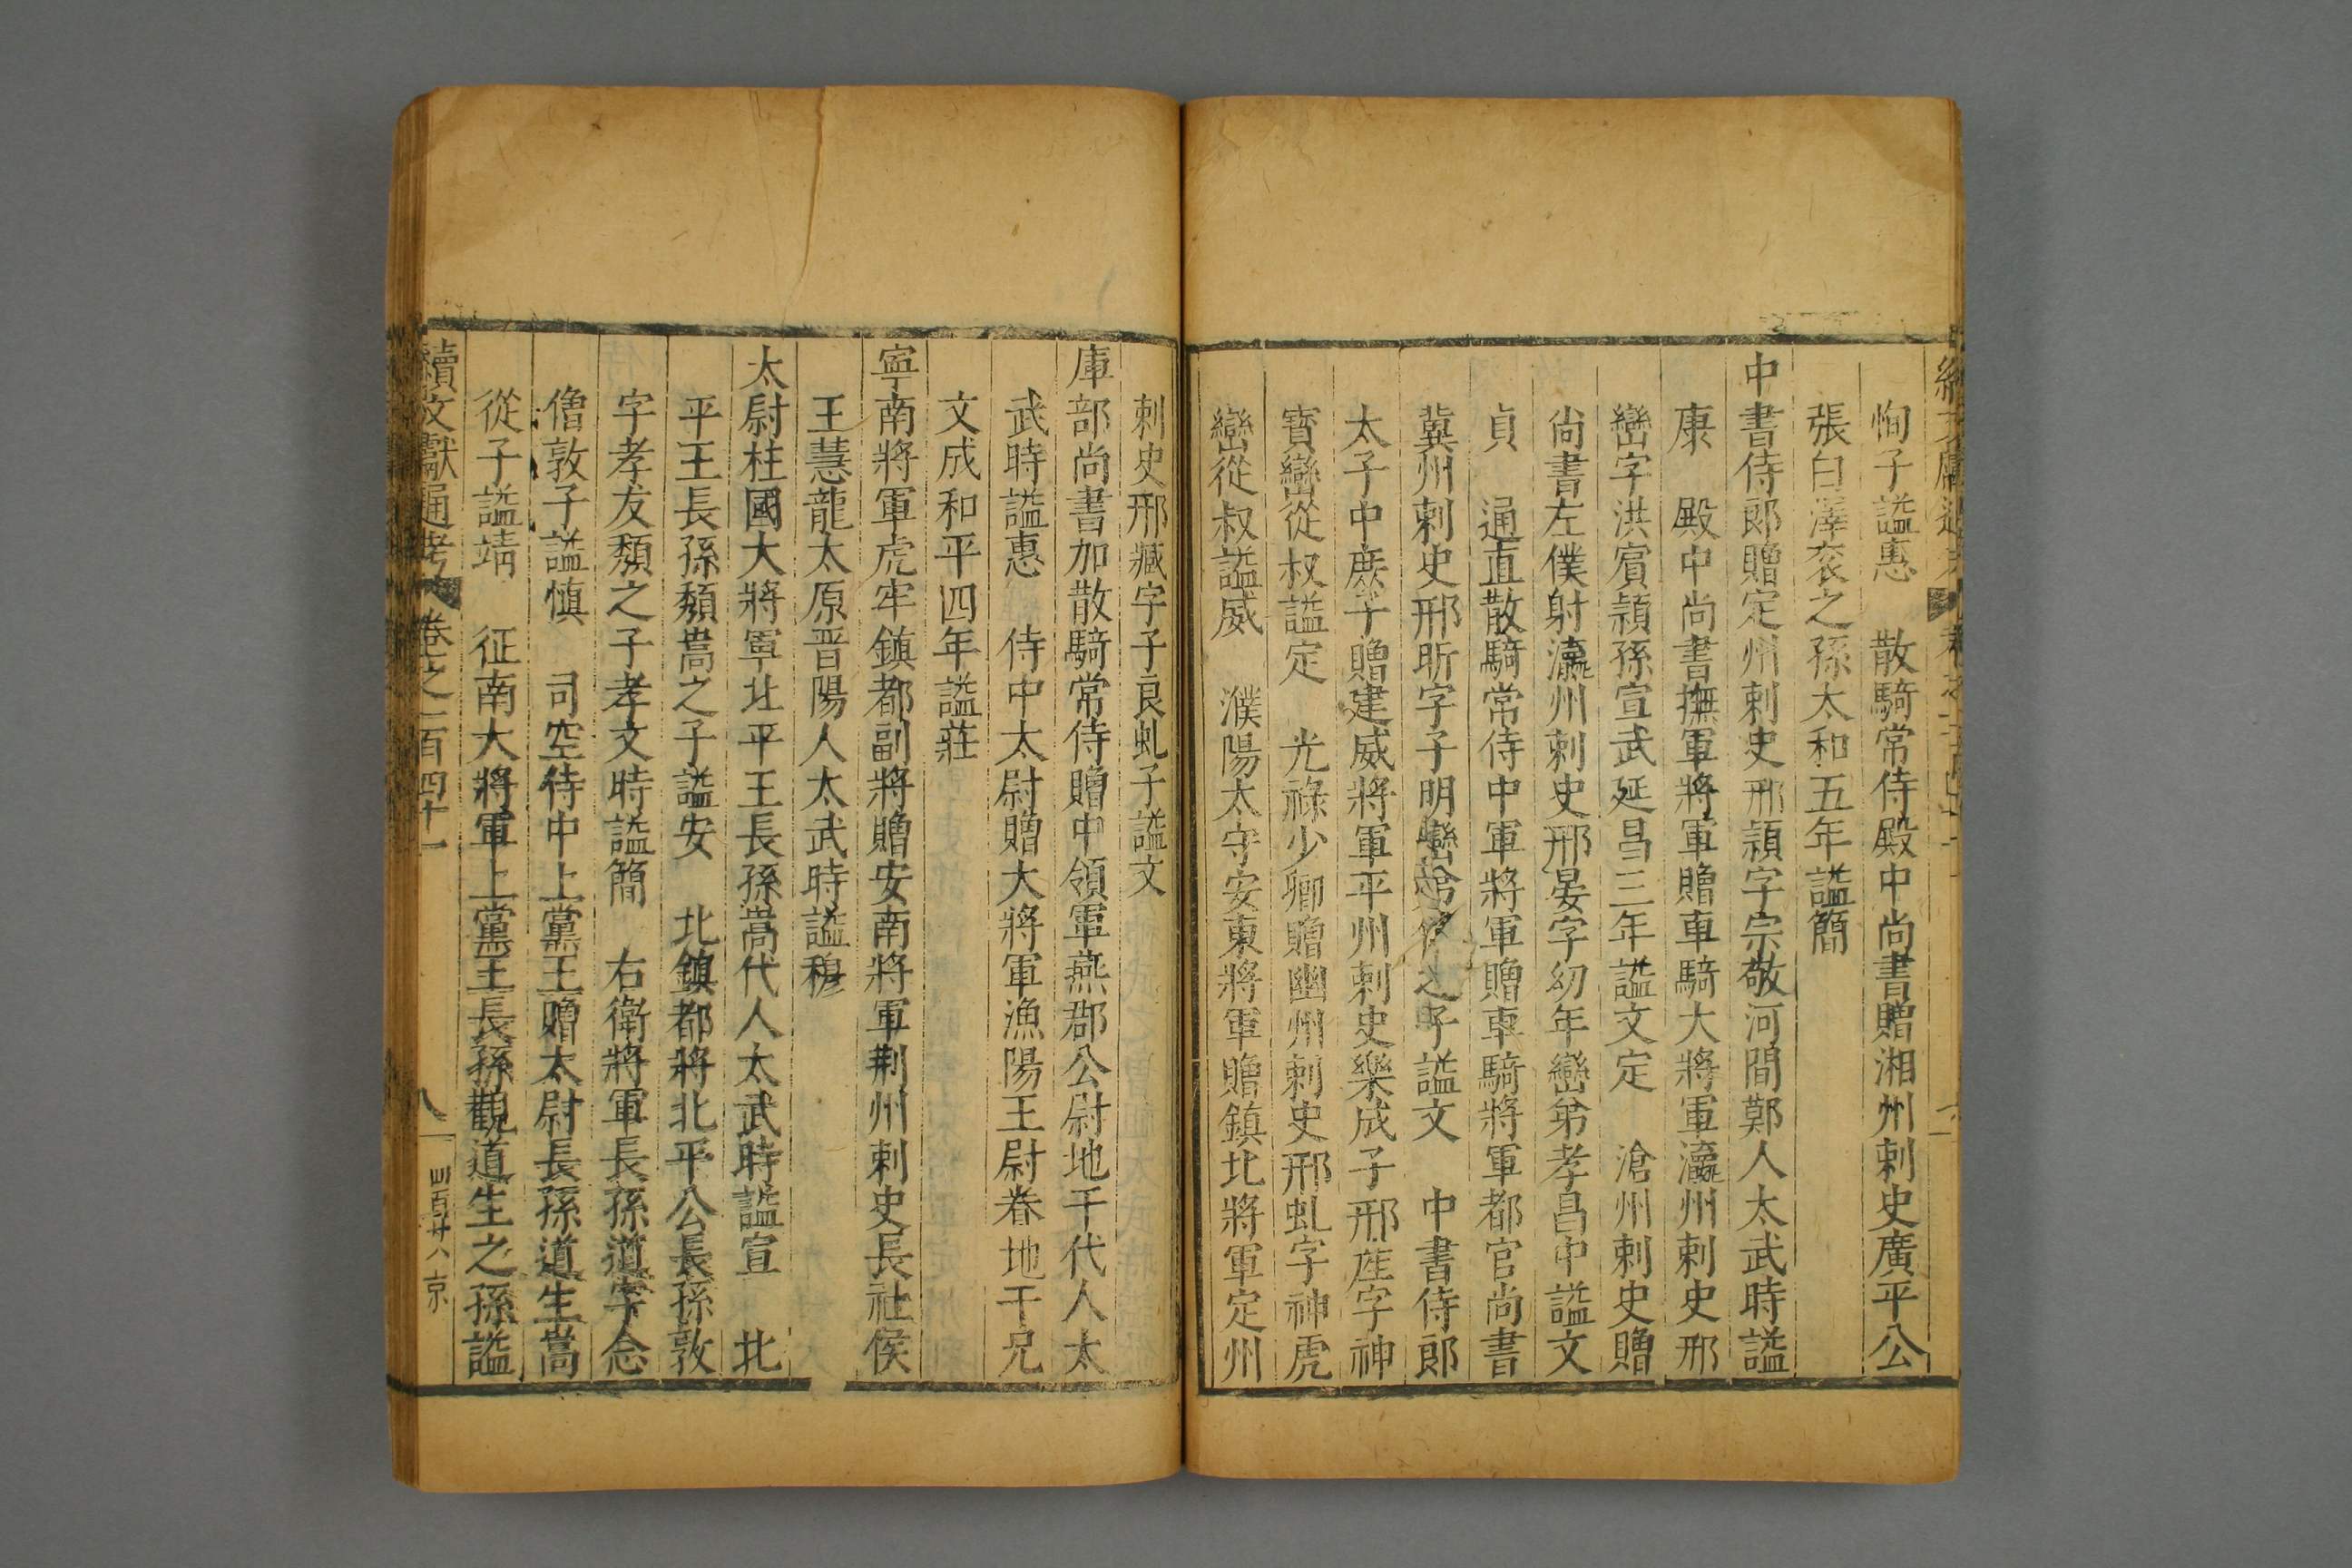 恂子謚惠　散騎常侍殿中尚書贈湘州刺史廣平公
張白澤衮之孫太和五年謚簡
中書侍郎贈定州刺史邢頴字宗敬河間鄭人太武時謚
康　殿中尚書撫軍將軍贈車騎大將軍瀛州刺史邢
巒字洪賔頴孫宣武延昌三年謚文定　滄州刺史贈
尚書左僕射瀛州刺史邢晏字幼年巒弟孝昌中謚文
貞　通直散騎常侍中軍將軍贈車騎將軍都官尚書
冀州刺史邢昕字子明巒之子謚文　中書侍郎
太子中庶子贈建威將軍平州刺史樂成子邢産字神
寳巒從叔謚定　光祿少卿贈幽州刺史邢虬字神虎
巒從叔謚威　濮陽太守安東將軍贈鎮北將軍定州
刺史邢臧字子良虬子謚文
庫部尚書加散騎常侍贈中領軍燕郡公尉地干代人太
武時謚惠　侍中太尉贈大將軍漁陽王尉眷地干兄
文成和平四年謚莊
寧南將軍虎牢鎮都副將贈安南將軍荆州刺史長社侯
王慧龍太原晋陽人太武時謚穆
太尉柱國大將軍北平王長孫嵩代人太武時謚宣　北
平王長孫頽嵩之子謚安　北鎮都將北平公長孫敦
字孝友頽之子孝文時謚簡　右衛將軍長孫道字念
僧敦子謚慎　司空侍中上黨王贈太尉長孫道生嵩
從子謚靖　征南大將軍上黨王長孫觀道生之孫謚
續文獻通考　卷之一百四十一　八　四百廿八　京